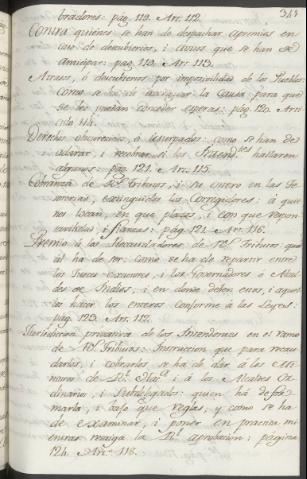 bradores: pág. 119. Art. 112.
Contra quienes se han de despachar apremios en
caso de descubiertos, i avisos que se han de
anticipar: pag. 119. Art. 113.
Atrasos, ó descubiertos por imposibilidad de los Pueblos:
como se ha de justificar la causa para que
se les puedan conceder esperas: pág. 120. Arti
culo 114.
Derechos obscurecidos, ó usurpados: como se han de
aclarar, i recobrar si los Intend.tes hallaren
algunos: pág. 121. Art. 115.
Cobranza de R.s Tributos, i su entero en las Te
sorerias, extinguidos los Corregidores: á quie
nes tocan, en que plazos, i con que respon
sabilidad, i fianzas: pág. 121. Art. 116.
Premio á los Recaudadores de R.s Tributos que
tal ha de ser: como se ha de repartir entre
los Jueces Exactores, i los Governadores ó Alcal
des de Indios, i en donde deben estos, i aquel
los hacer los enteros conforme á las Leyes:
pág. 123. Art. 117.
Jurisdiccion privativa de los Intendentes en el ramo
de R.s Tributos: Instruccion que para recau
darlos, i cobrarlos se ha de dar á los
de i á los Alcaldes Or
dinarios, i Subdelegados: quien há de for
marla, i bajo que reglas; y como se ha
de examinar, i poner en practica mi
entras recaiga la R.l aprobacion: página
124. Art.o 118.